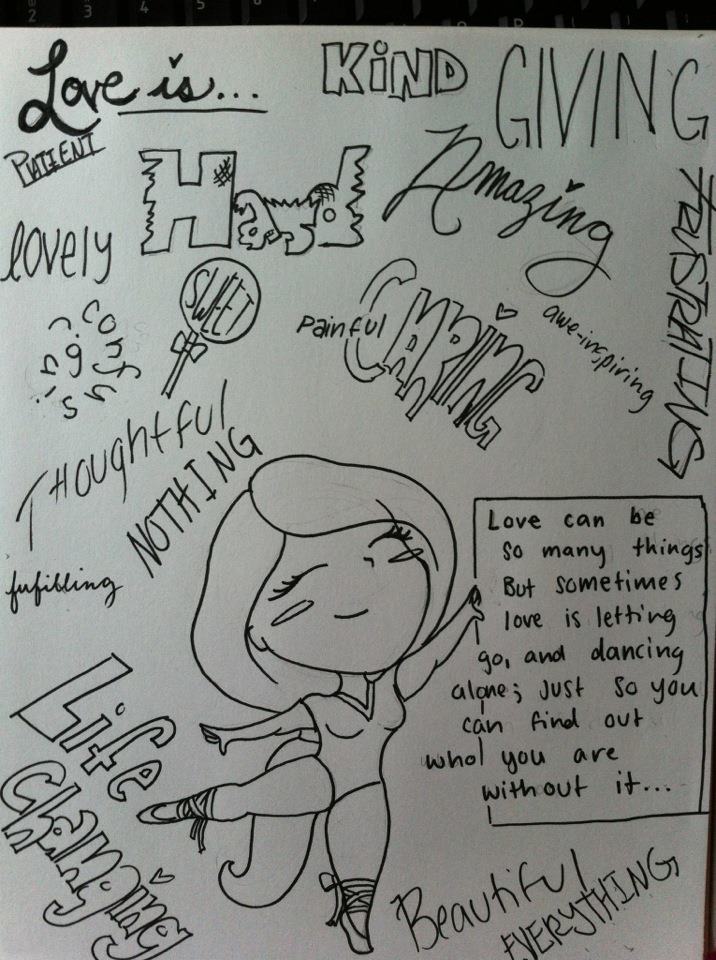 Love is...
KiND
GIVING
PATIENT
HaRd
Amazing
FRUSTRATING
lovely
SWEET
Painful
CARING
awe-inspiring
confusing
Thoughtful
NOTHING
fufilling
Love can be
so many things
But sometimes
love is letting
go, and dancing
alone; just so you
can find out
who you are
without it...
Life
Changing
Beautiful
EVERYTHING